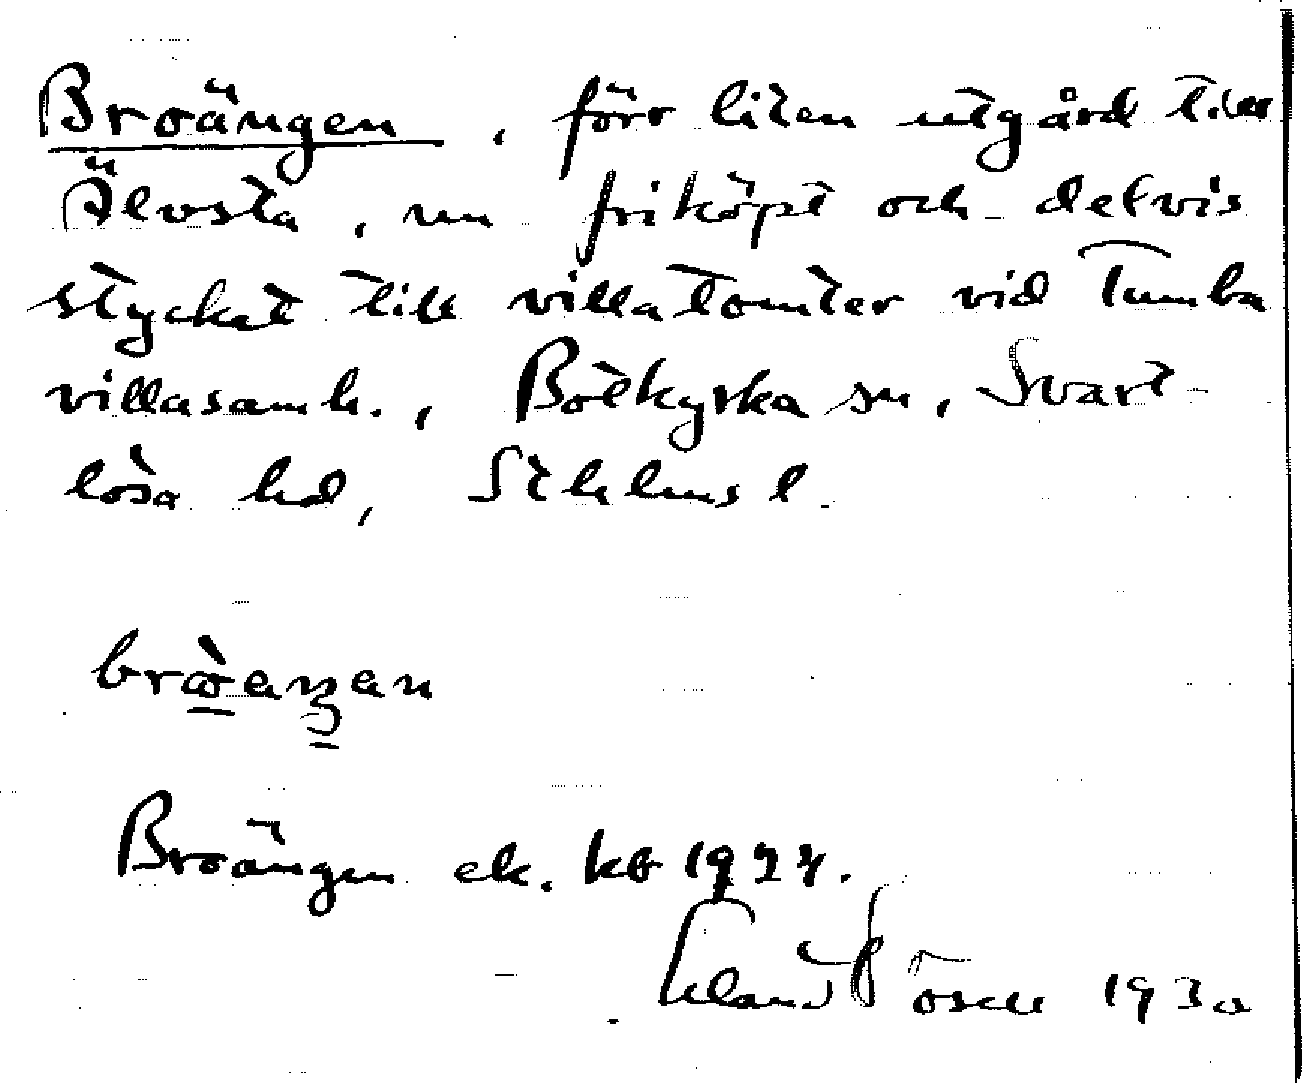 Broängen, förr liten utgård till
Älvsta, nu friköpt och delvis
styckat till villatomter vid Tumba
villasamh., Botkyrka sn, Svart-
lösa hd, Sthlms l.
Broängen ek. kb 1924.
Erland Rosell 1930